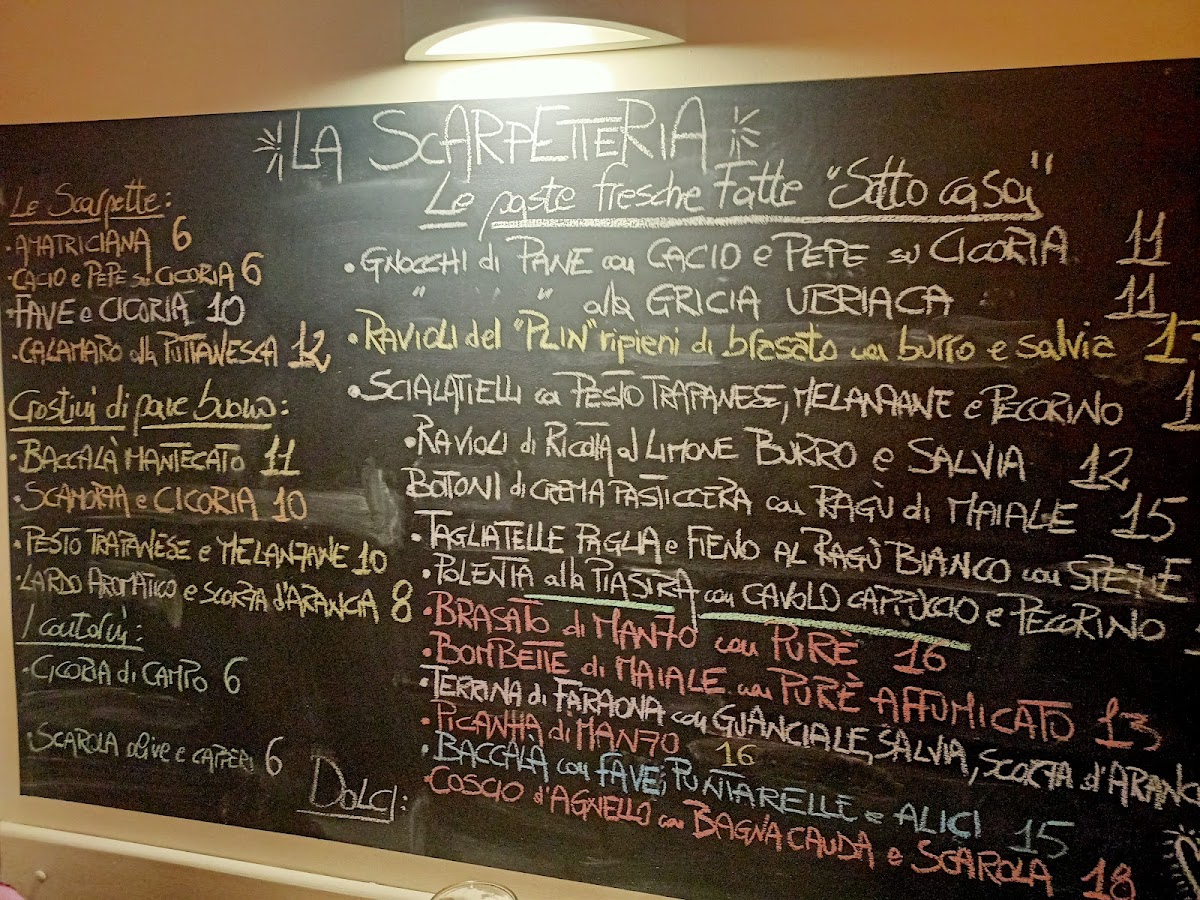 LA SCARPETTERIA
Le Scarpette:
• AMATRICIANA 6
• CACIO e PEPE su CICORIA 6
• FAVE e CICORIA 10
• CALAMARO alla PUTTANESCA 12
Crostini di pane buono:
• BACCALÀ MANTECATO 11
• SCAMORZA e CICORIA 10
• PESTO TRAPANESE e MELANZANE 10
• LARDO AROMATICO e SCORZA d'ARANCIA 8
I contorni:
• CICORIA di CAMPO 6
• SCAROLA olive e CAPPERI 6
Dolci:
Le paste fresche Fatte "Sotto casa"
• GNOCCHI di PANE con CACIO e PEPE su CICORIA 11
" " alla GRICIA UBRIACA 11
• RAVIOLI del "PLIN" ripieni di brasato con burro e salvia
• SCIALATIELLI con PESTO TRAPANESE, MELANZANE e PECORINO
• RAVIOLI di RICOTTA al LIMONE BURRO e SALVIA 12
BOTTONI di CREMA PASTICCERA con RAGÙ di MAIALE 15
• TAGLIATELLE PAGLIA e FIENO AL RAGÙ BIANCO con SPEZIE
• POLENTA alla PIASTRA con CAVOLO CAPPUCCIO e PECORINO
• BRASATO di MANZO con PURÈ 16
• BOMBETTE di MAIALE con PURÈ AFFUMICATO 13
• TERRINA di FARAONA con GUANCIALE, SALVIA, SCORZA d'ARANC
• PICANHA di MANZO 16
• BACCALÀ con FAVE, PUNTARELLE e ALICI 15
• COSCIO d'AGNELLO con BAGNA CAUDA e SCAROLA 18